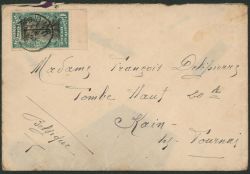 Madame François Delpierre
Tombe Haut
Kain
lez Tournai
Belgique